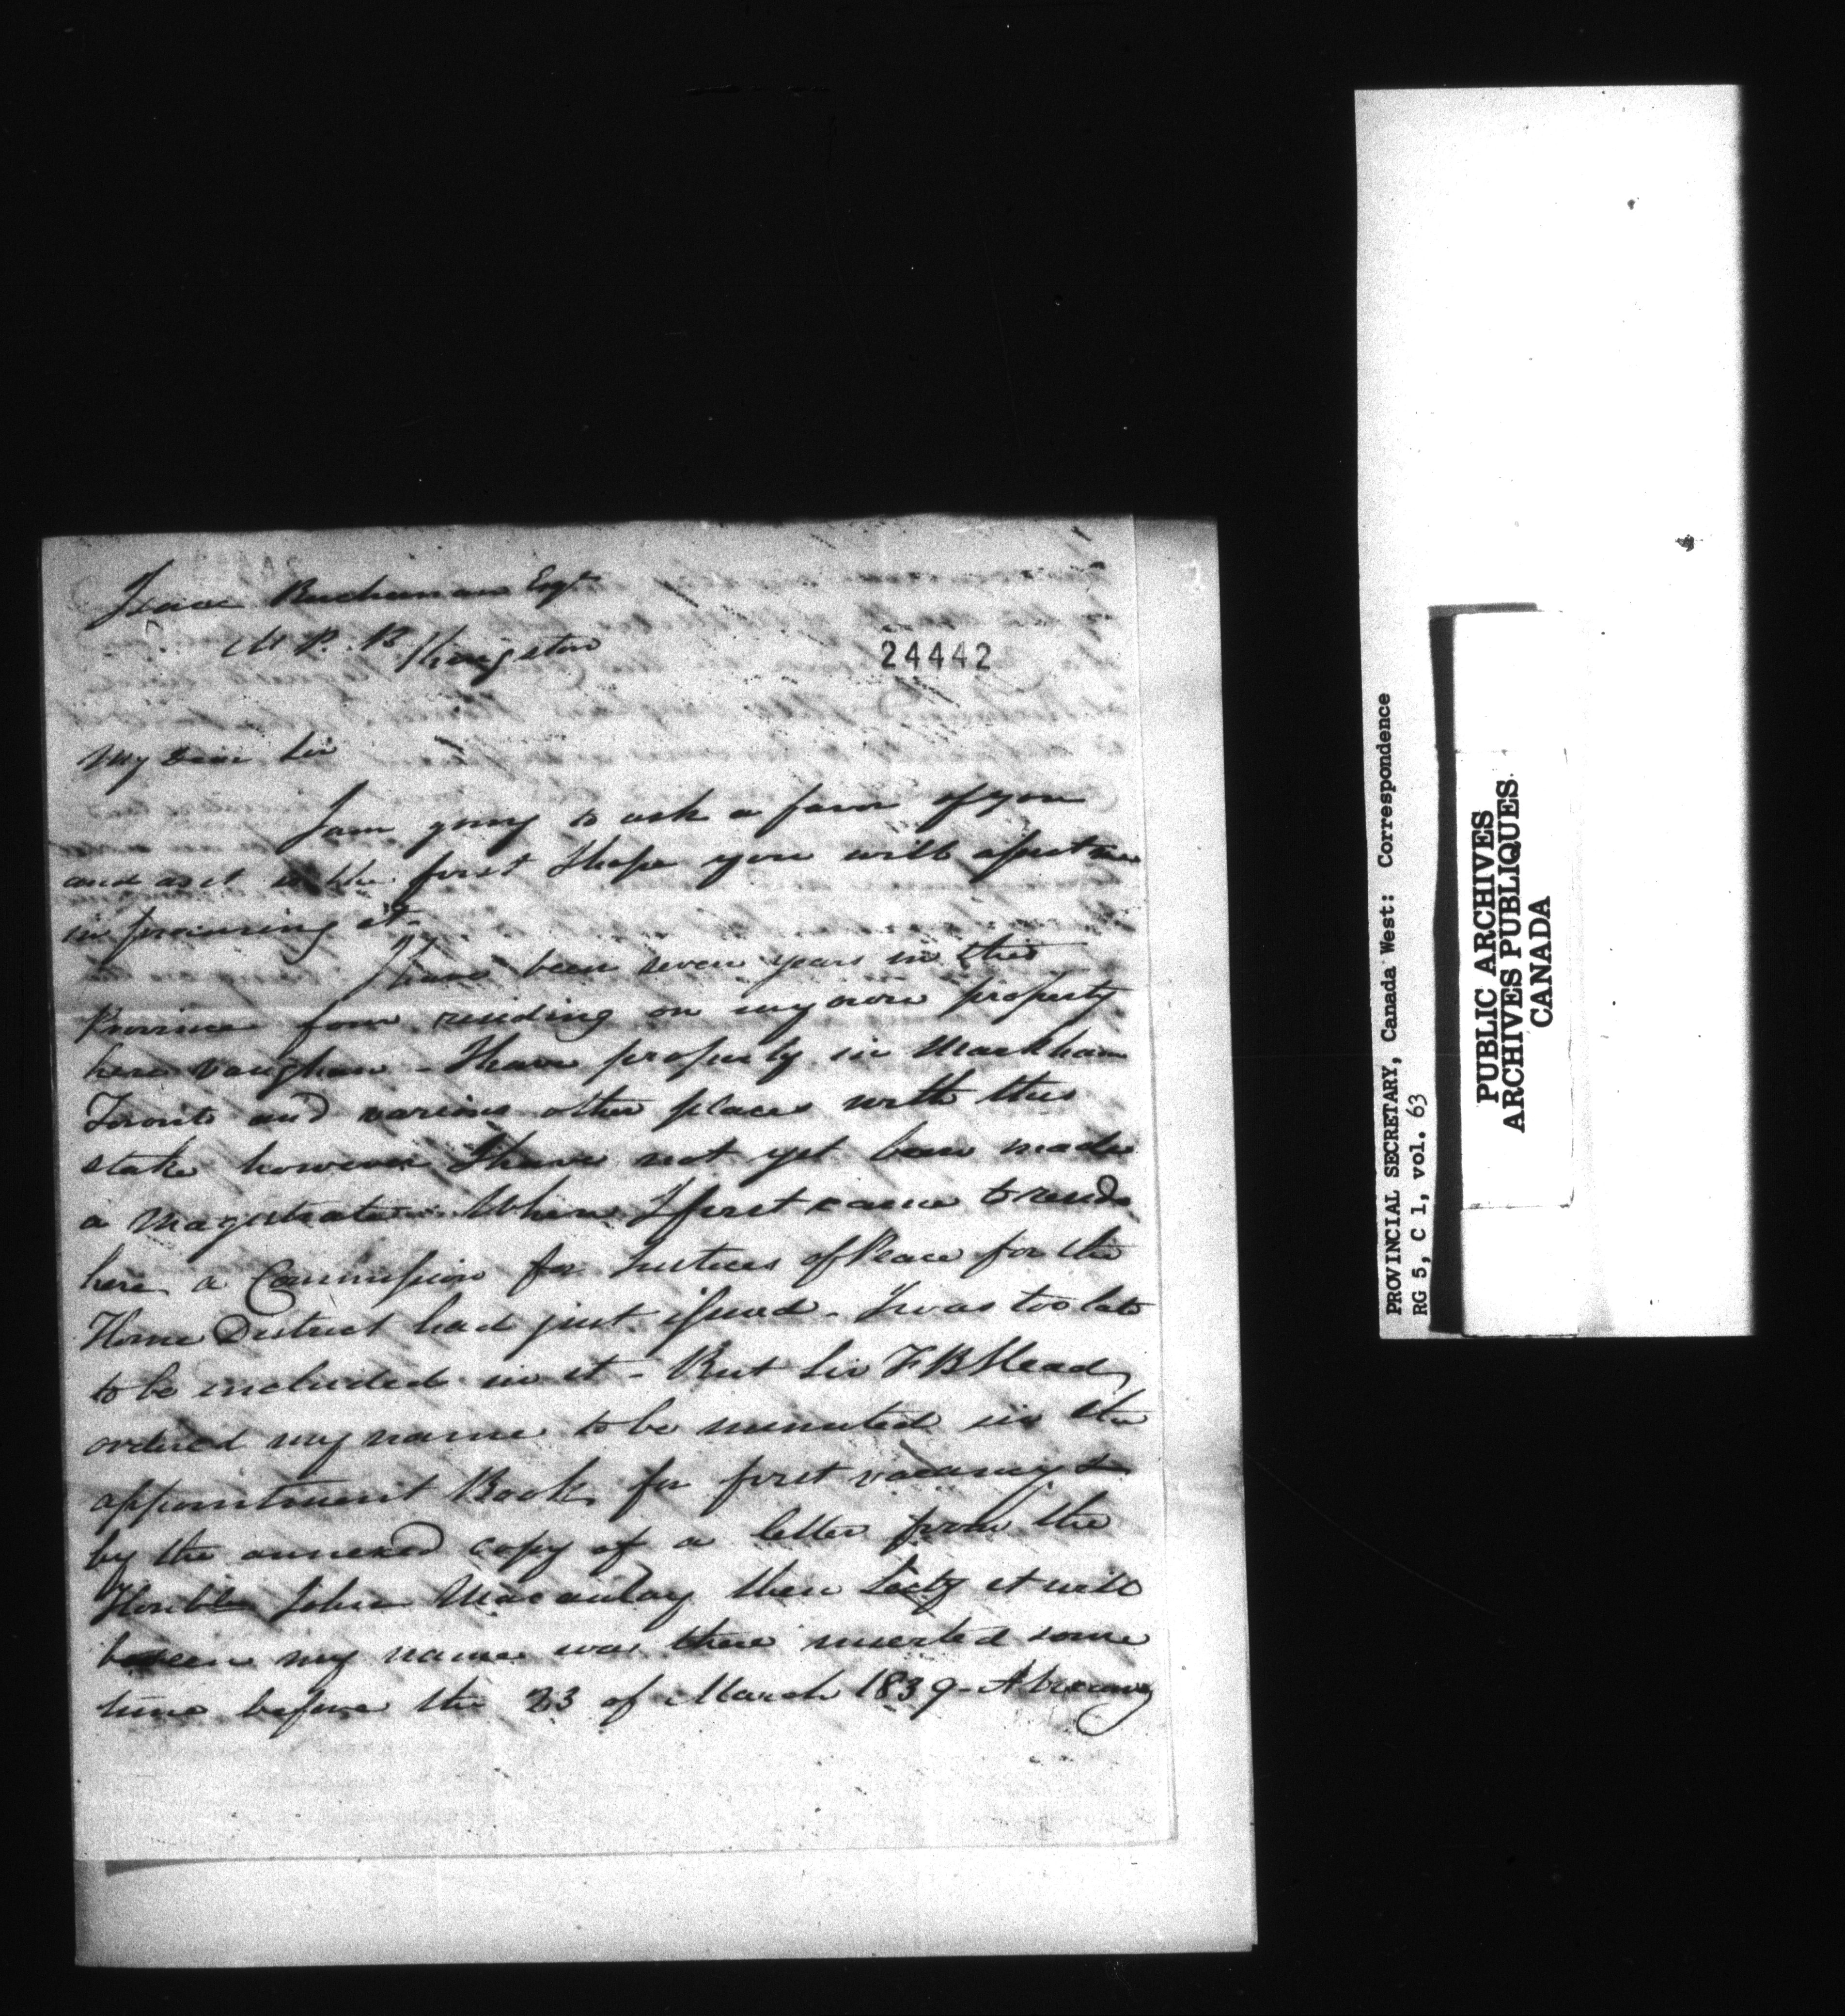 Isaac Buchanan Esqr
M. P. P. Kingston
24442
My Dear Sir
I am going to ask a favor of you
and as it is the first I hope you will assist me
in procuring it.
I have been seven years in this
Province four residing on my own property
here Vaughan - I have property in Markham
Toronto and various other places with this
stake however I have not yet been made
a Magistrate. When I first came to reside
here a Commission for Justices of Peace for the
Home District had just issued - I was too late
to be included in it - But Sir F B Head
ordered my name to be minuted in the
appointment Book for first vacancy &
by the annexed copy of a letter from the
Honble John Macaulay then Secty it will
be seen my name was there inserted some
time before the 23 of March 1839 - A vacancy
PROVINCIAL SECRETARY, Canada West: Correspondence
RG 5, C 1, vol. 63
PUBLIC ARCHIVES
ARCHIVES PUBLIQUES
CANADA